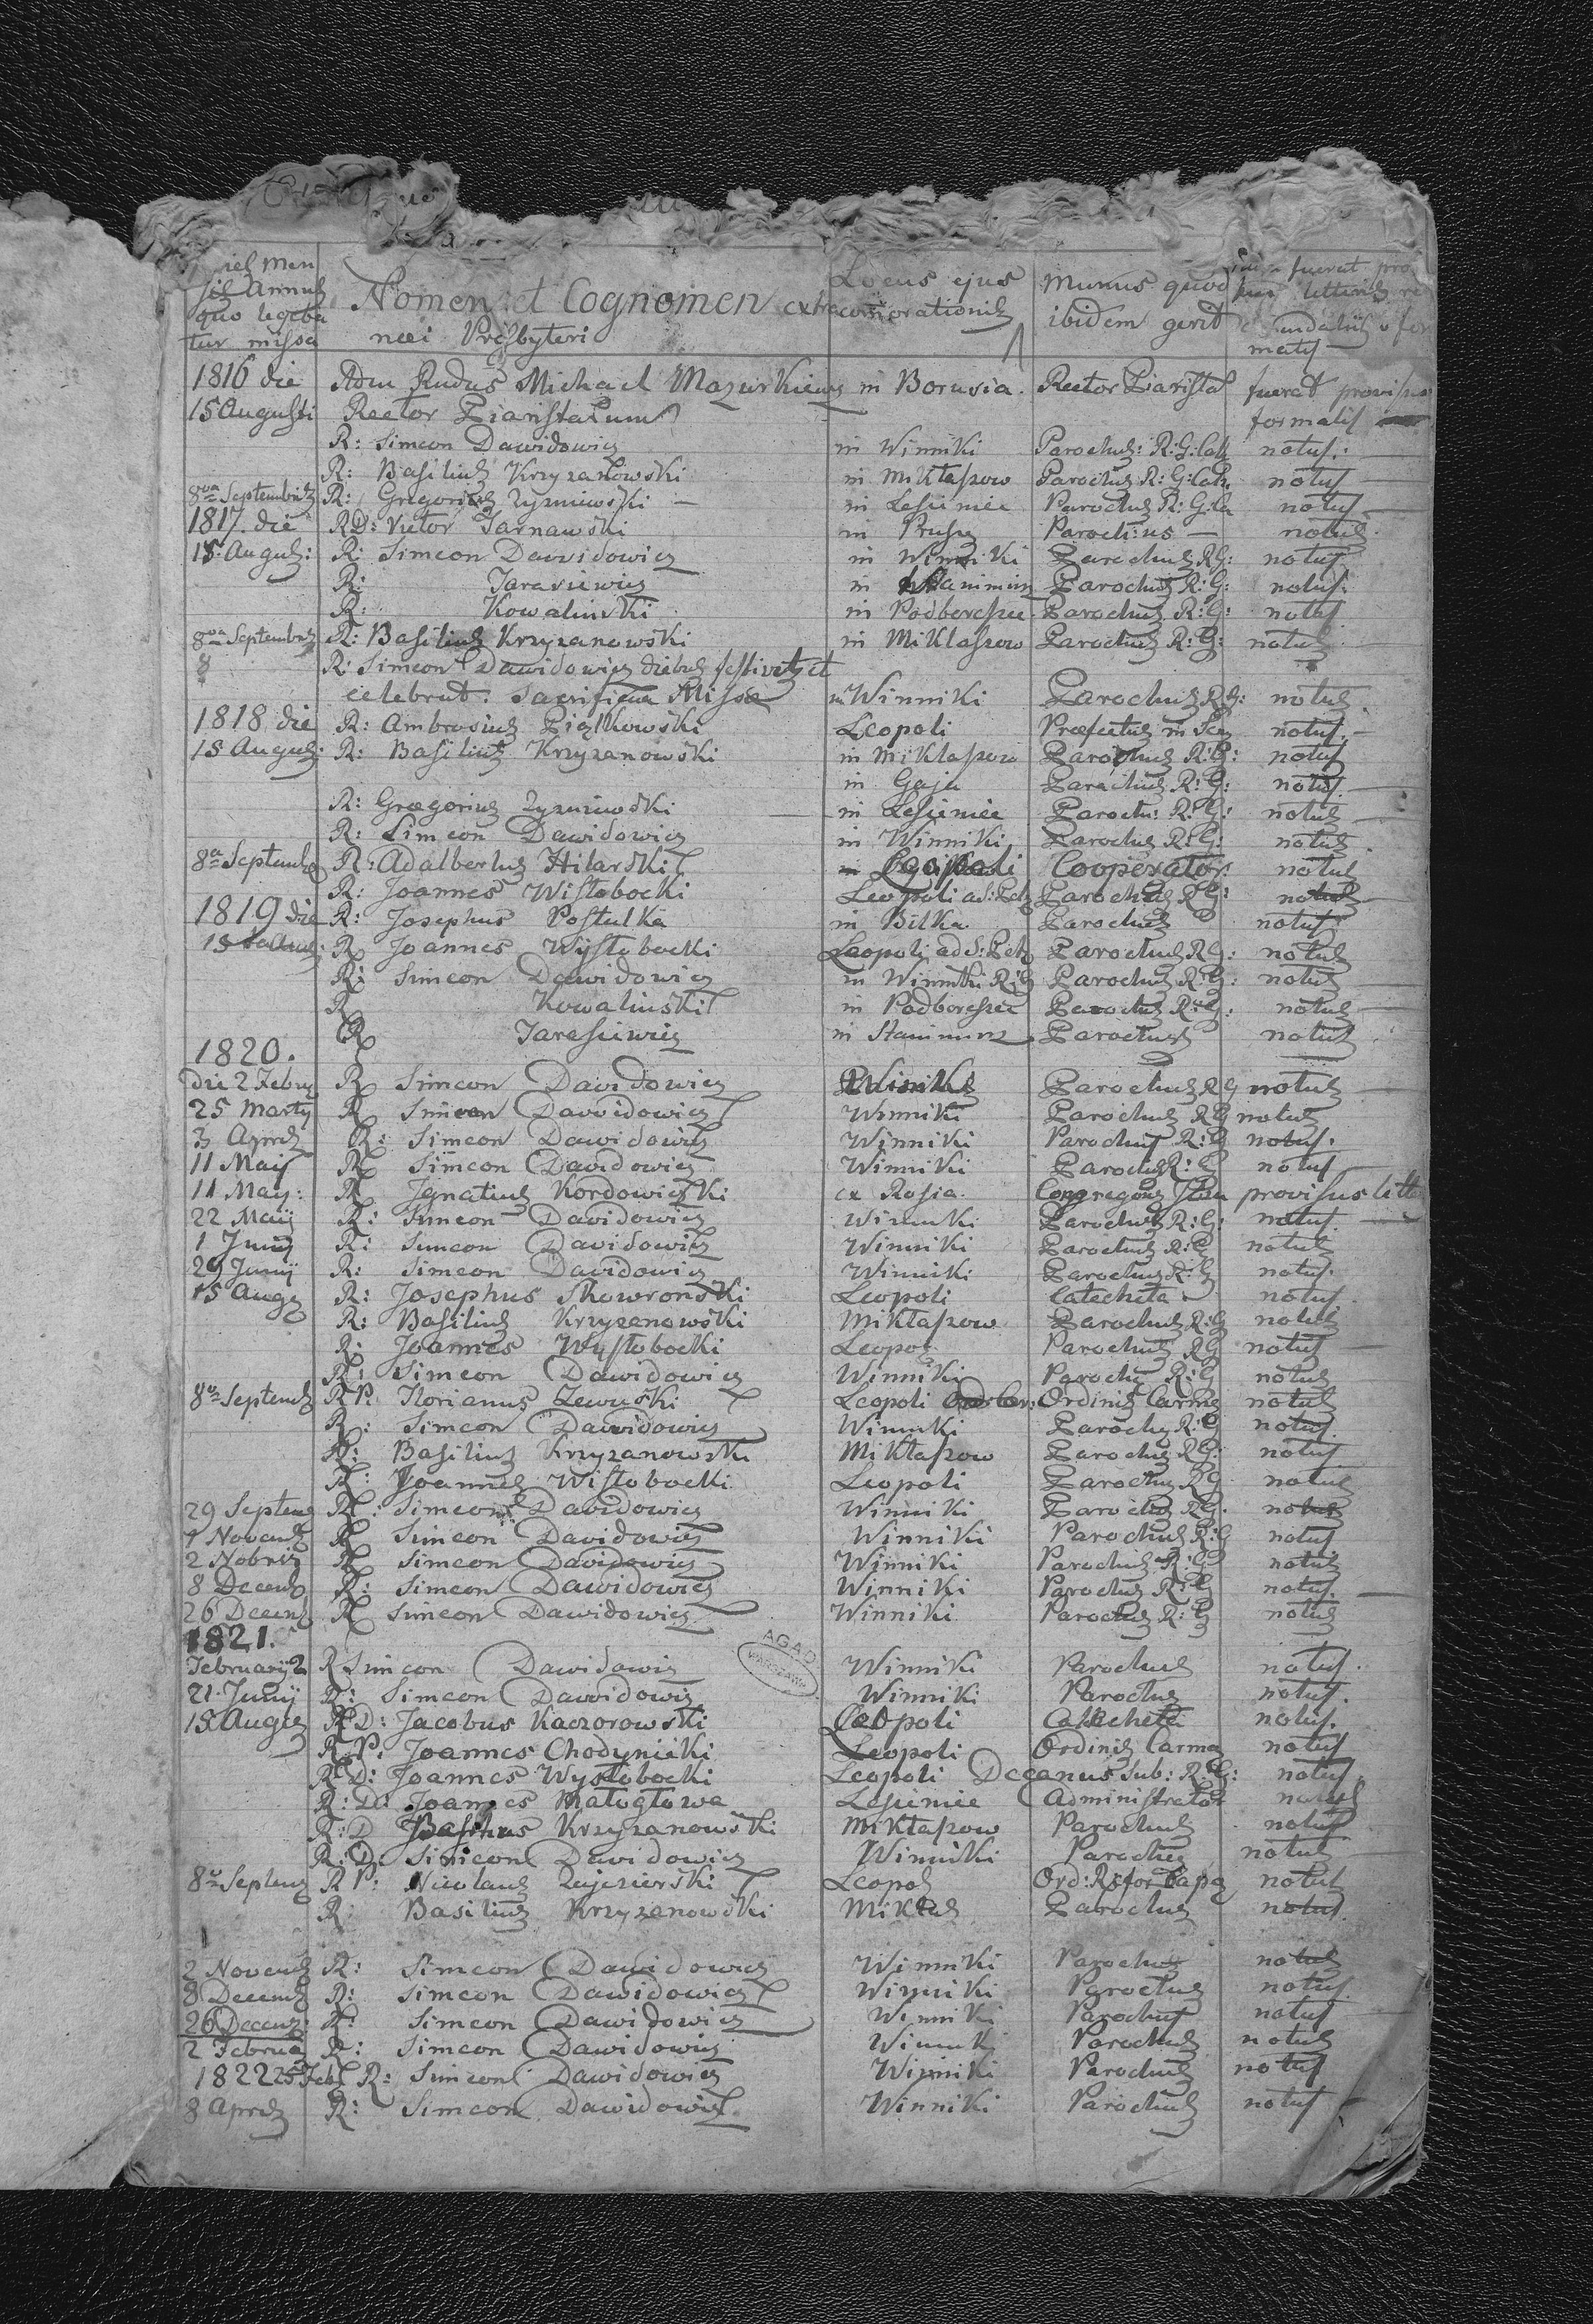 Dies Men
sis Annus
quo legeba
tur missa
Nomen et Cognomen extra
nei Presbyteri
Locus ejus
commorationis
Munus quod
ibidem gerit
fuerat pro
litteris
matis
1816 die Adm Rndus Michael Mazurkiewicz in Borusia. Rector Piarista fuerat provisus
15 Augusti Rector Piaristarum formatis
R: Simeon Dawidowicz in Winniki Parochus: R:G:Cath notus.
R: Basilius Krzyzanowski in Miklaszow Parochus R:G:Cath. notus
8va Septembris R: Gregorius Zyzniewski in Lesienice Parochus R:G:Ca notus
1817 die RD: Victor Tarnawski in Prusy Parochus notus
15 Augus: R: Simeon Dawidowicz in Winniki Parochus RG: notus
R: Tarasiewicz in Parochus R:G: notus
R: Kowalinski in Podberesce Parochus R:G: notus
8va Septembris R: Basilius Krzyzanowski in Miklaszow Parochus R:G: notus
8 R: Simeon Dawidowicz diebus festivitat
celebrat: Sacrificia Missa in Winniki Parochus RG: notus
1818 die R: Ambrosius Piątkowski Leopoli Præfectus in notus
15 Augus: R: Basilius Krzyzanowski in Miklaszow Parochus R:G: notus
in Gaja Parochus R:G: notus
R: Gregorius Zyzniewski in Lesienice Paroch: R:G: notus
R: Simeon Dawidowicz in Winniki Parochus R:G: notus
8a Septemb R: Adalbertus Hilarski Leopoli Cooperator notus
R: Joannes Wisłobocki Leopoli ad S: Petr Parochus RG: notus
1819 die R: Josephus Postulka in Bilka Parochus notus
15 ta Aug: R Joannes Wysłobocki Leopoli ad S: Petr Parochus RG: notus
R: Simeon Dawidowicz in Winniki R:G Parochus R:G: notus
R Kowalinski in Podberesce Parochus R:G: notus
R Tarasiewicz in Parochus notus
1820.
die 2 Febru R Simeon Dawidowicz Winniki Parochus RG notus
25 Marty R Simeon Dawidowicz Winniki Parochus RG notus
3 Aprils R: Simeon Dawidowicz Winniki Parochus R:G notus.
11 Maij R Simeon Dawidowicz Winniki Parochus R:G notus
11 May: R Ignatius Kordowiczki ex Rosia Congregonis provisus litt
22 Maij R: Simeon Dawidowicz Winniki Parochus R:G: notus.
1 Junij R: Simeon Dawidowicz Winniki Parochus R:G notus
29 Junij R: Simeon Dawidowicz Winniki Parochus R:G notus.
15 Aug R: Josephus Skowronski Leopoli Catecheta notus
R: Basilius Krzyzanowski Miklaszow Parochus R:G notus
R: Joannes Wysłobocki Leopol Parochus RG notus
R: Simeon Dawidowicz Winniki Parochu R:G notus
8a Septemb R P: Florianus Zewuski Leopoli Ordinis Carme notus
R: Simeon Dawidowicz Winniki Parochu R:G notus
R: Basilius Krzyzanowski Miklaszow Parochus RG: notus
R: Joannes Wisłobocki Leopoli Parochus RG notus
29 Septem R: Simeon Dawidowicz Winniki Parochus RG: notus
1 Novemb R Simeon Dawidowicz Winniki Parochus R:G notus
2 Nobris R Simeon Dawidowicz Winniki Parochus R:G notus
8 Decemb R: Simeon Dawidowicz Winniki Parochus R:G notus.
26 Decemb R Simeon Dawidowicz Winniki Parochus R:G notus
1821.
Februarij 2 R Simeon Dawidowicz Winniki Parochus notus.
21 Junij R: Simeon Dawidowicz Winniki Parochus notus.
15 Augus R D: Jacobus Kaczorowski Leopoli Catecheta notus.
R. P: Joannes Chodyniecki Leopoli Ordinis Carme notus
R D: Joannes Wysłobocki Leopoli Decanus Sub: R:G: notus
R: D: Joannes Małogłowa Lesienice Administrator notus
R: D Basilius Krzyzanowski Miklaszow Parochus notus
R: D: Simeon Dawidowicz Winniki Parochu notus
8a Septem R P: Nicolaus Zajezierski Leopol Ord: Refor Capu notus
R: Basilius Krzyzanowski Miklas Parochus notus
2 Novemb R: Simeon Dawidowicz Winniki Parochus notus
8 Decemb R: Simeon Dawidowicz Winniki Parochus notus
26 Decem R: Simeon Dawidowicz Winniki Parochus notus
2 Februa R: Simeon Dawidowicz Winniki Parochus notus
1822 25 Feb R: Simeon Dawidowicz Winniki Parochus notus
8 Aprils R: Simeon Dawidowicz Winniki Parochus notus
AGAD
WARSZAWA